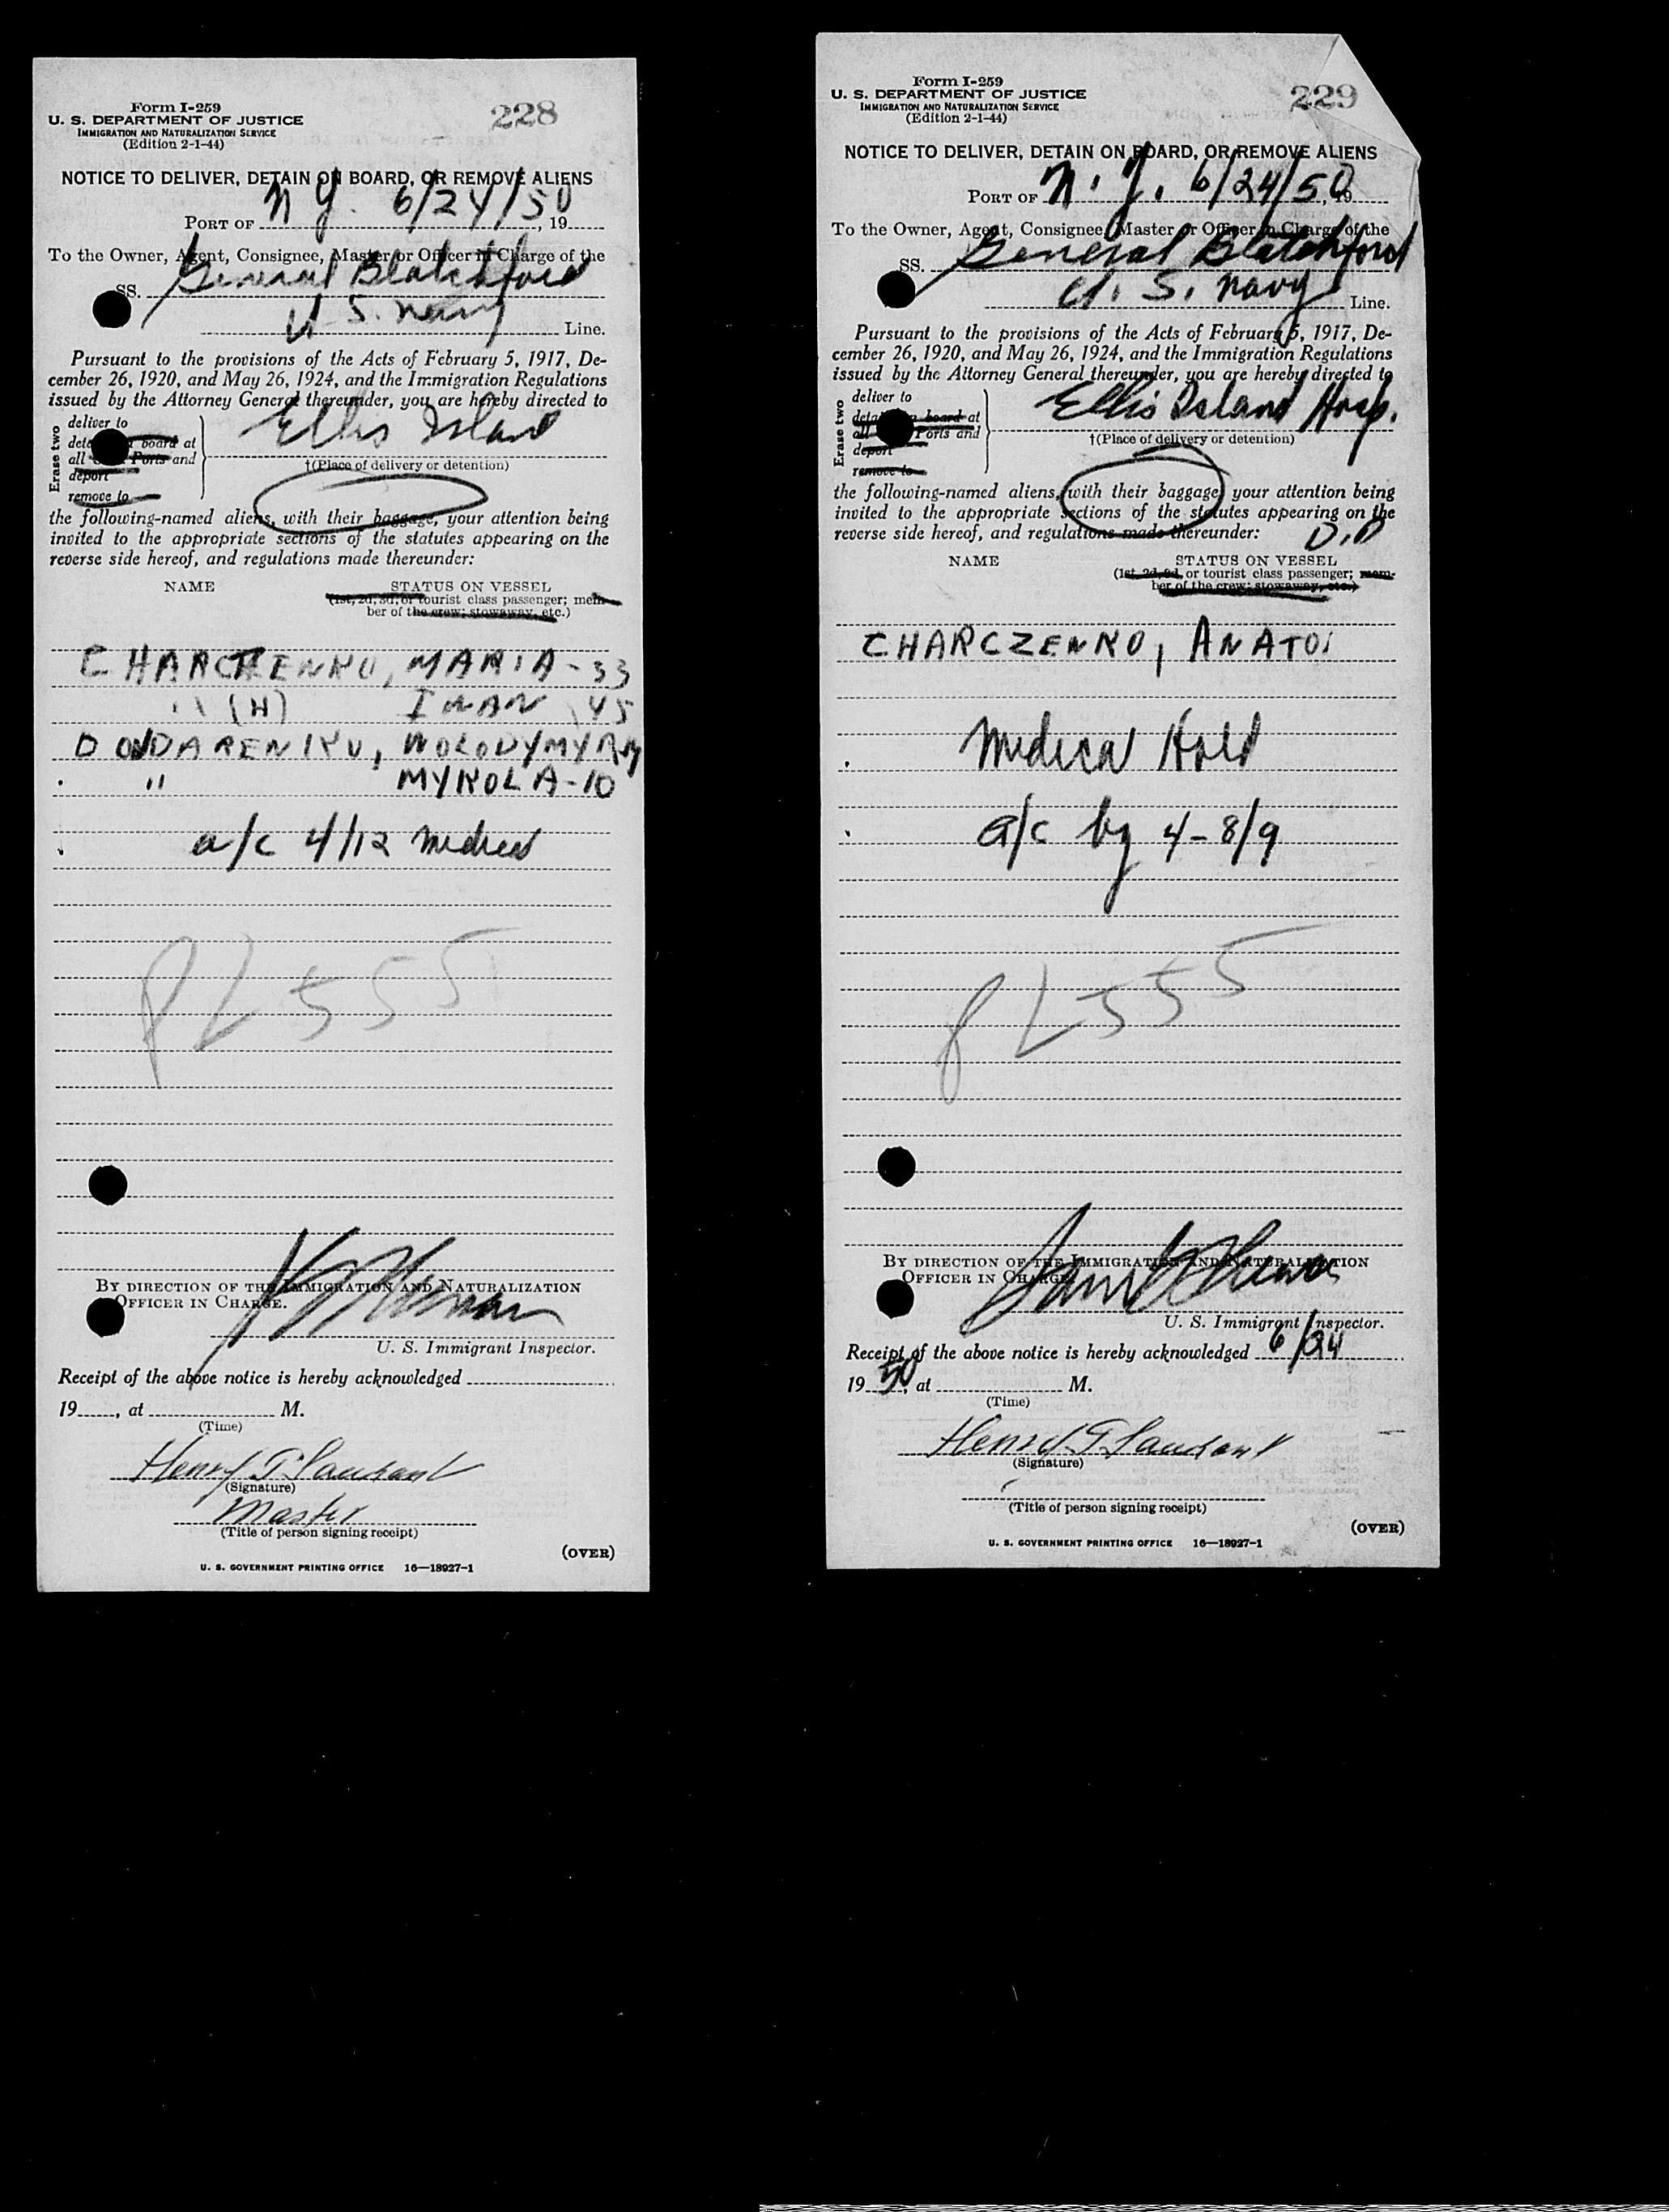 Form I-259
228
U. S. DEPARTMENT OF JUSTICE
IMMIGRATION AND NATURALIZATION SERVICE
(Edition 2-1-44)
NOTICE TO DELIVER, DETAIN ON BOARD, OR REMOVE ALIENS
PORT OF N Y. 6/24/50, 19
To the Owner, Agent, Consignee, Master or Officer in Charge of the
SS. General Blatchford
U S. Navy Line.
Pursuant to the provisions of the Acts of February 5, 1917, De-
cember 26, 1920, and May 26, 1924, and the Immigration Regulations
issued by the Attorney General thereunder, you are hereby directed to
Erase two
deliver to
board at
all Ports and
deport
remove to
Ellis Island
†(Place of delivery or detention)
the following-named aliens, with their baggage, your attention being
invited to the appropriate sections of the statutes appearing on the
reverse side hereof, and regulations made thereunder:
NAME STATUS ON VESSEL
(1st, 2d, 3d, or tourist class passenger; mem-
ber of the crew; stowaway, etc.)
CHARCZENKO, MARIA - 33
" (H) IWAN 45
MYKOLA - 10
a/c 4/12 medical
PL 555
BY DIRECTION OF THE IMMIGRATION AND NATURALIZATION
OFFICER IN CHARGE.
U. S. Immigrant Inspector.
Receipt of the above notice is hereby acknowledged
19, at M.
(Time)
Henry
(Signature)
Master
(Title of person signing receipt)
(OVER)
U. S. GOVERNMENT PRINTING OFFICE 16—18927-1
Form I-259
229
U. S. DEPARTMENT OF JUSTICE
IMMIGRATION AND NATURALIZATION SERVICE
(Edition 2-1-44)
NOTICE TO DELIVER, DETAIN ON BOARD, OR REMOVE ALIENS
PORT OF N. Y. 6/24/50, 19
To the Owner, Agent, Consignee, Master or Officer in Charge of the
SS. General Blatchford
U. S. Navy Line.
Pursuant to the provisions of the Acts of February 5, 1917, De-
cember 26, 1920, and May 26, 1924, and the Immigration Regulations
issued by the Attorney General thereunder, you are hereby directed to
Erase two
deliver to
board at
all Ports and
deport
remove to
Ellis Island Hosp.
†(Place of delivery or detention)
the following-named aliens, with their baggage, your attention being
invited to the appropriate sections of the statutes appearing on the
reverse side hereof, and regulations made thereunder:
D.P
NAME STATUS ON VESSEL
(1st, 2d, 3d, or tourist class passenger; mem-
ber of the crew; stowaway, etc.)
CHARCZENKO, ANATOL
Medical Hold
a/c by 4-8/9
PL 555
BY DIRECTION OF THE IMMIGRATION AND NATURALIZATION
OFFICER IN CHARGE.
U. S. Immigrant Inspector.
Receipt of the above notice is hereby acknowledged 6/24
19 50, at M.
(Time)
Henry
(Signature)
(Title of person signing receipt)
(OVER)
U. S. GOVERNMENT PRINTING OFFICE 16—18927-1